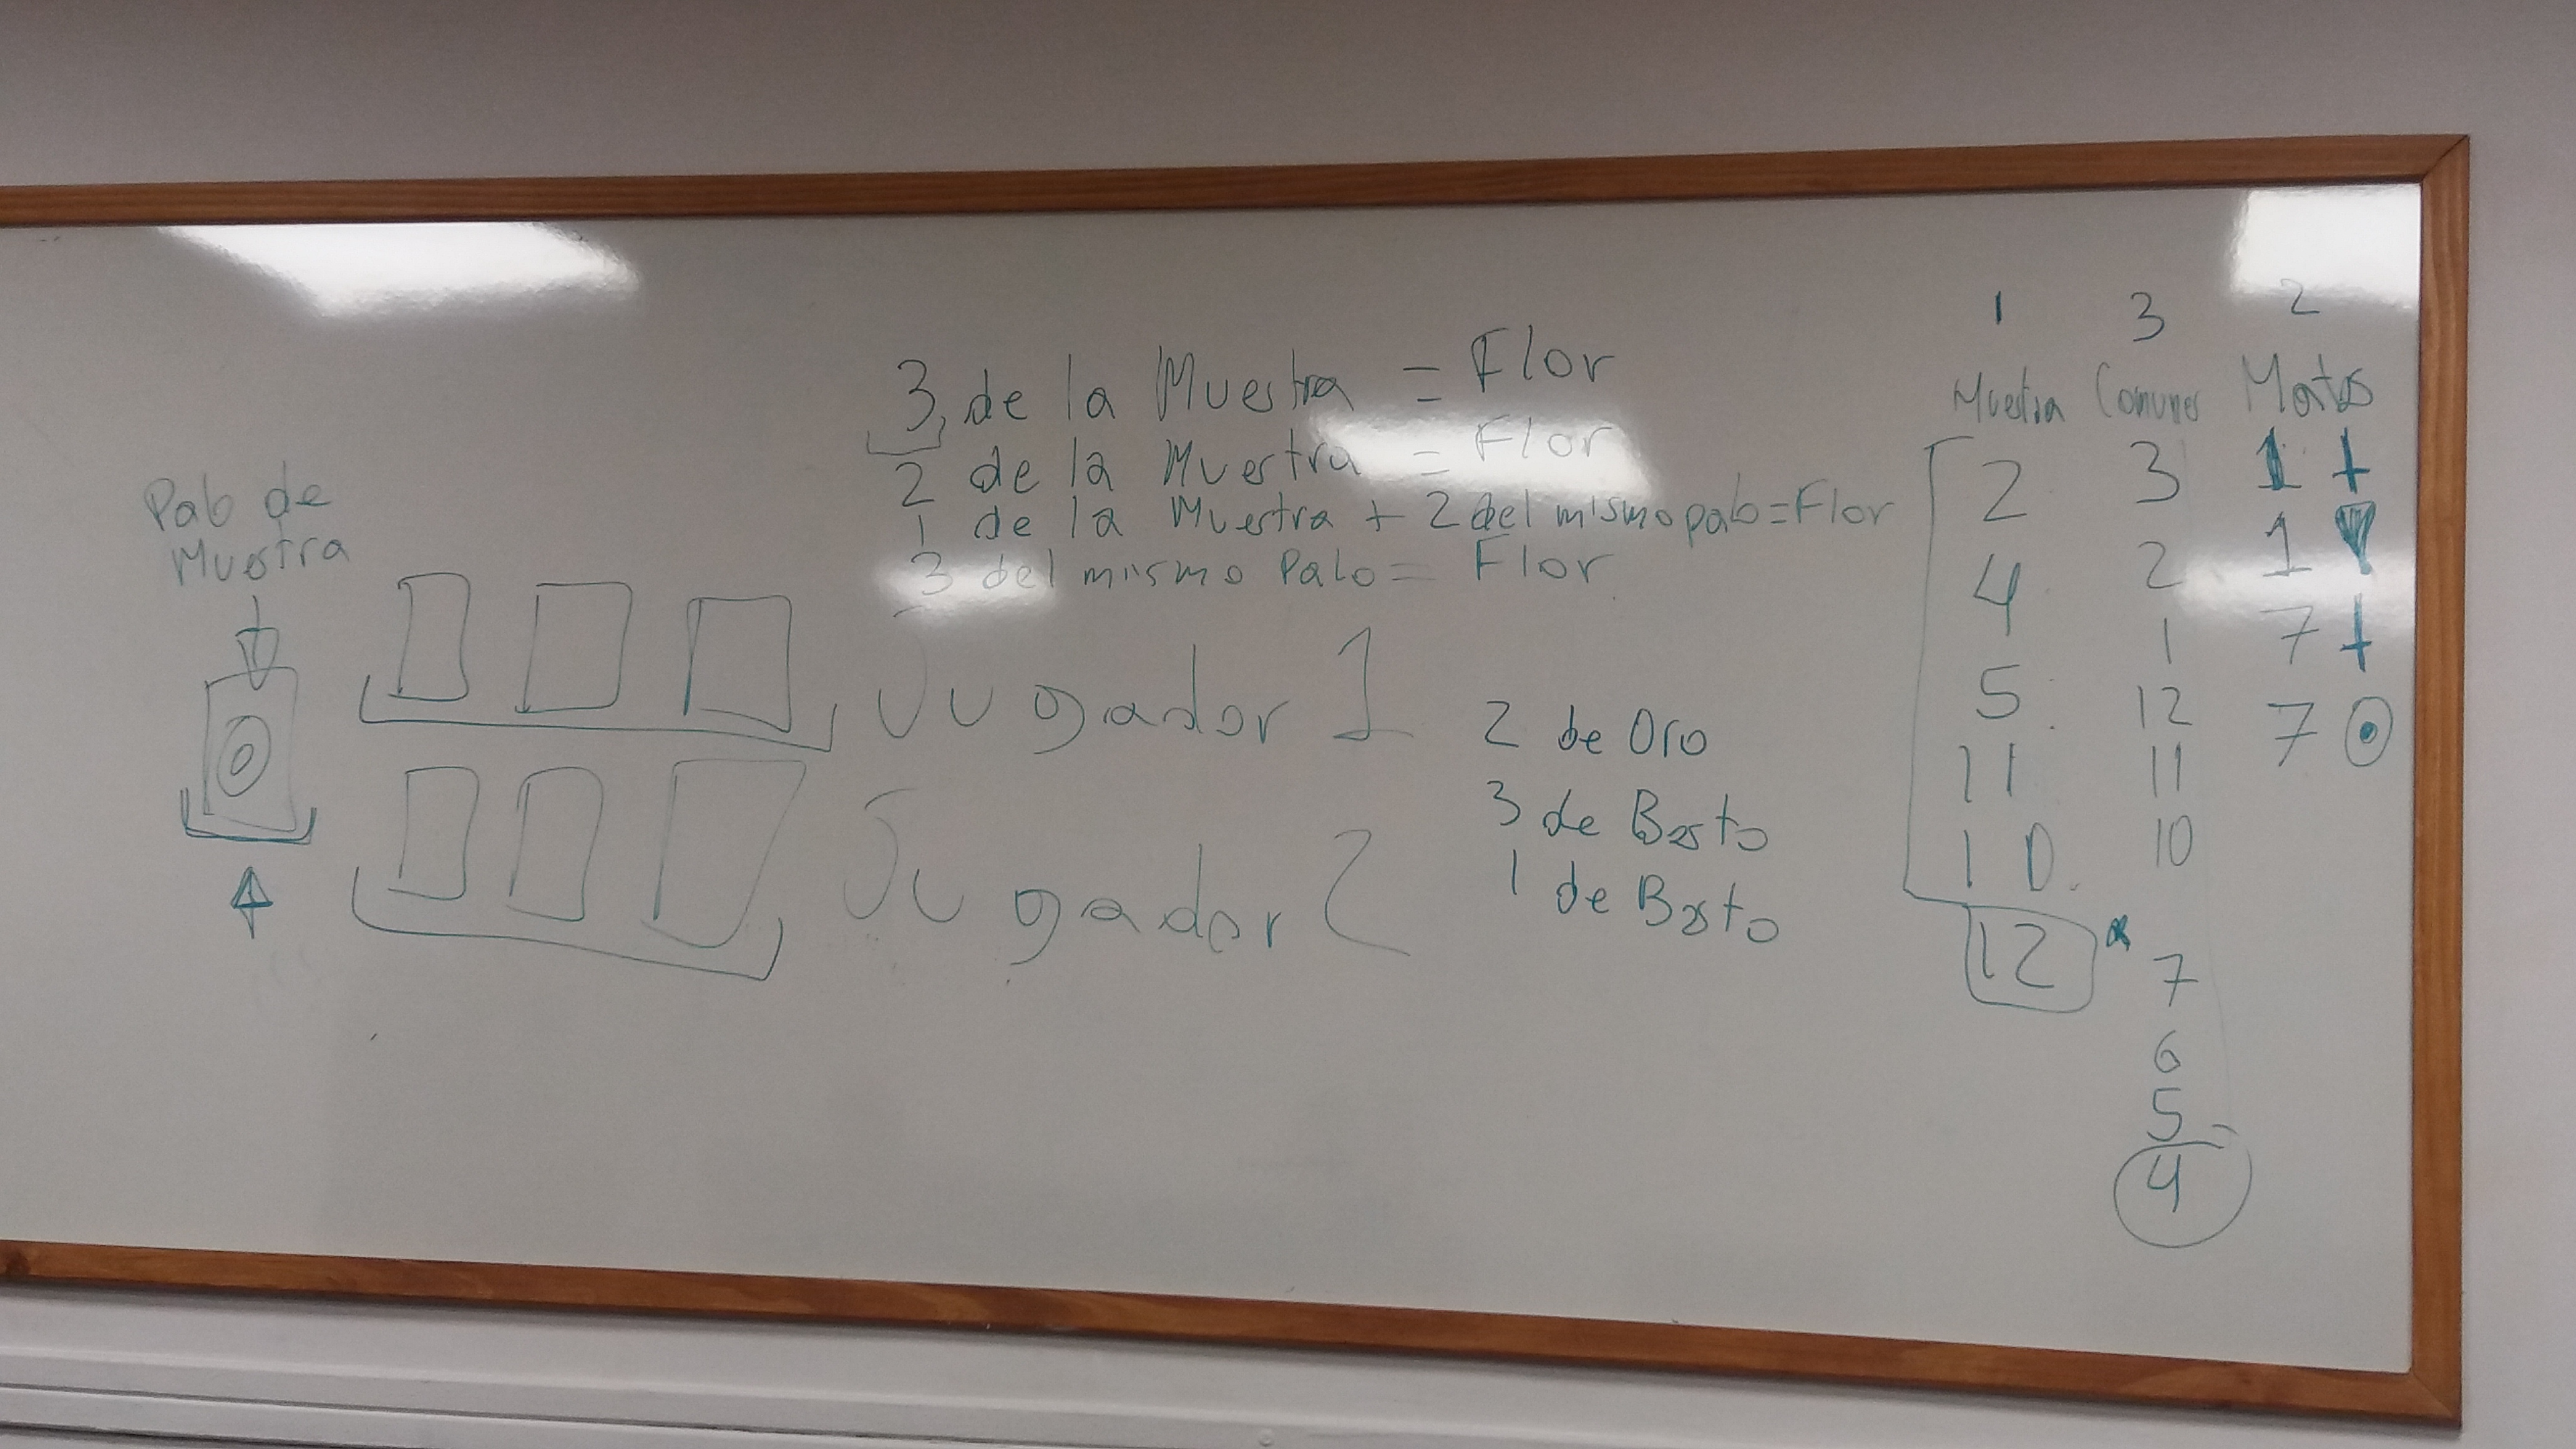 3 de la Muestra = Flor
2 de la Muestra = Flor
1 de la Muestra + 2 del mismo palo = Flor
3 del mismo Palo = Flor
Palo de
Muestra
Jugador 1
Jugador 2
2 de Oro
3 de Basto
1 de Basto
1 3 2
Muestra Comunes Matas
2 3 1
4 2 1
5 1 7
11 12 7
10 11
12 10
7
6
5
4